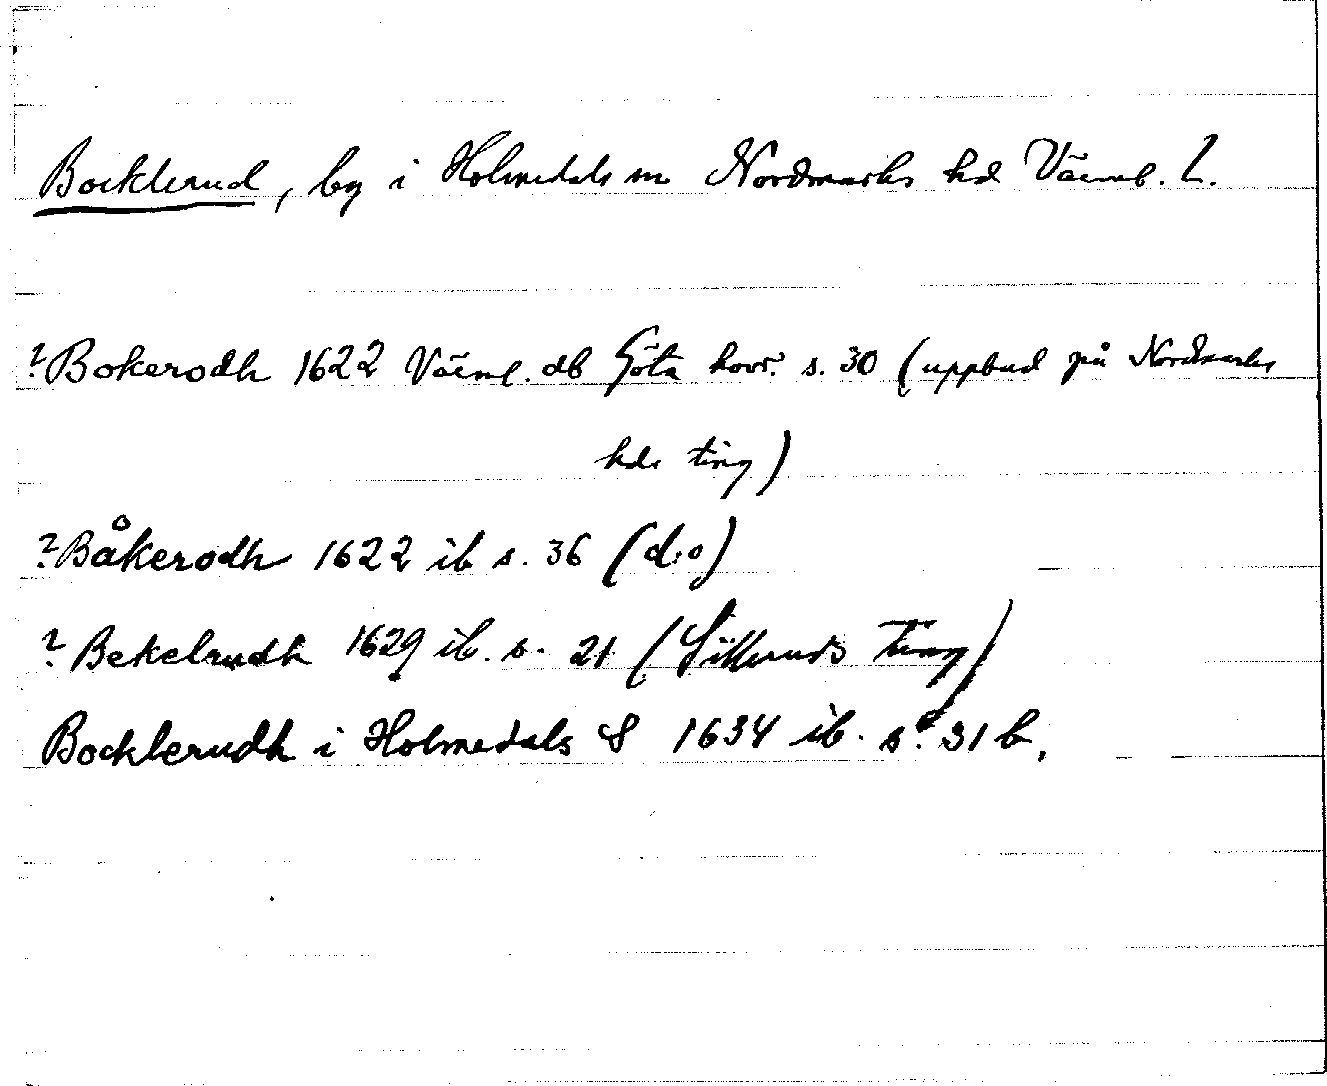 Bocklerud, by i Holmedals sn Nordmarks hd Värml. l.
?Bokerodh 1622 Värml. db Göta hovr. s. 30 (uppbud på Nordmarks
hds ting)
?Båkerodh 1622 ib s. 36 (d:o)
?Bekelrudh 1629 ib. s. 21 (Silleruds ting)
Bocklerudh i Holmedals S 1634 ib. s. 31 b.